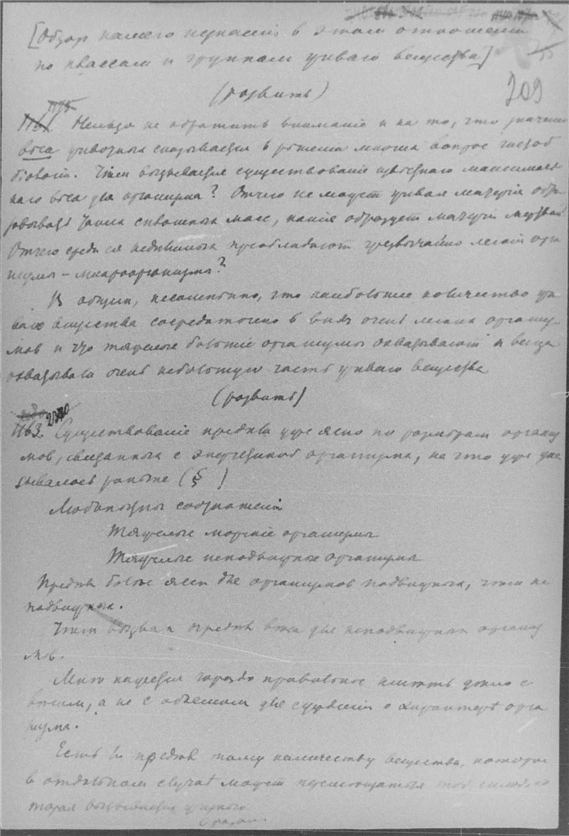 [Обзор нашего незнания в этом отношении
по классам и группам живого вещества]
(развить)
209
Нельзя не обратить внимание и на то, что значение
веса животных сказывается в решении многих вопросов
Чем вызывается существование максималь
ного веса для организма? Отчего не может живая материя обра
зовывать таких сплошных масс, какие образует материя мертвая
Отчего среди неделимых преобладают чрезвычайно легкие орга
низмы – микроорганизмы?
В общем, несомненно, что наибольшее количество жи
вого вещества сосредоточено в виде очень легких организ
мов и что тяжелые большие организмы охватывают и всегда
охватывали очень небольшую часть живого вещества
(развить)
1163. Существование предела уже ясно по размерам организ
мов, связанных с энергетикой организма, на что уже ука
зывалось раньше (§ )
Любопытны соотношения
Тяжелые морские организмы
Тяжелые неподвижные организмы
Предел более ясен для организмов подвижных, чем не
подвижных.
Чем вызван предел веса для неподвижных организ
мов.
Мне кажется гораздо правильнее иметь дело с
весом, а не с объемом для суждения о характере орга
низма.
Есть ли предел тому количеству вещества, которое
в отдельном случае может той силой, ко
торая